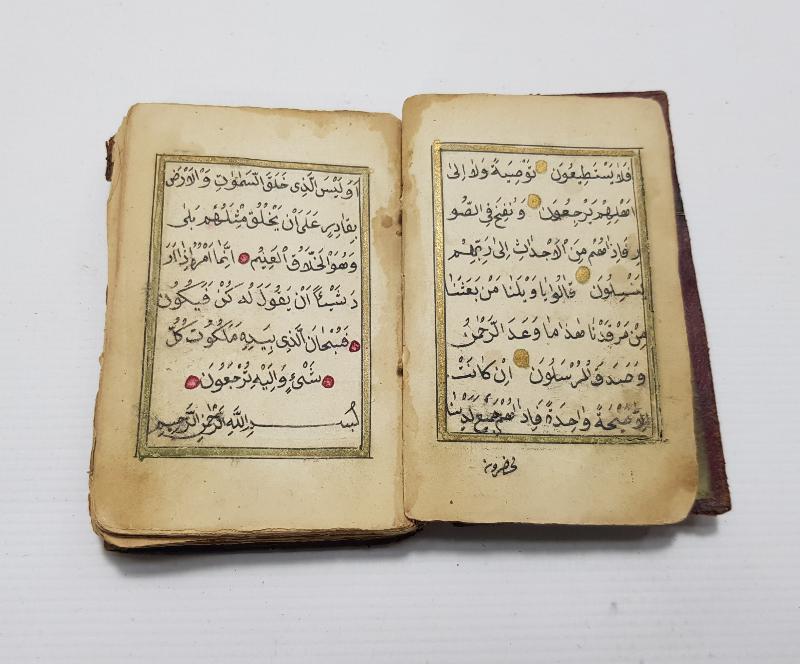 فَلَا يَسْتَطِيعُونَ تَوْصِيَةً وَلَا اِلٰى
اَهْلِهِمْ يَرْجِعُونَ وَنُفِخَ فِى الصُّو
رِ فَاِذَا هُمْ مِنَ الْاَجْدَاثِ اِلٰى رَبِّهِمْ
يَنْسِلُونَ قَالُوا يَا وَيْلَنَا مَنْ بَعَثَنَا
مِنْ مَرْقَدِنَا هٰذَا مَا وَعَدَ الرَّحْمٰنُ
وَصَدَقَ الْمُرْسَلُونَ اِنْ كَانَتْ
اِلَّا صَيْحَةً وَاحِدَةً فَاِذَا هُمْ جَمِيعٌ لَدَيْنَا
محضرون
اَوَلَيْسَ الَّذِى خَلَقَ السَّمٰوَاتِ وَالْاَرْضَ
بِقَادِرٍ عَلٰى اَنْ يَخْلُقَ مِثْلَهُمْ بَلٰى
وَهُوَ الْخَلَّاقُ الْعَلِيمُ اِنَّمَا اَمْرُهُ اِذَا اَرَا
دَ شَيْئًا اَنْ يَقُولَ لَهُ كُنْ فَيَكُونُ
فَسُبْحَانَ الَّذِى بِيَدِهِ مَلَكُوتُ كُلِّ
شَىْءٍ وَاِلَيْهِ تُرْجَعُونَ
بِسْمِ اللّٰهِ الرَّحْمٰنِ الرَّحِيمِ